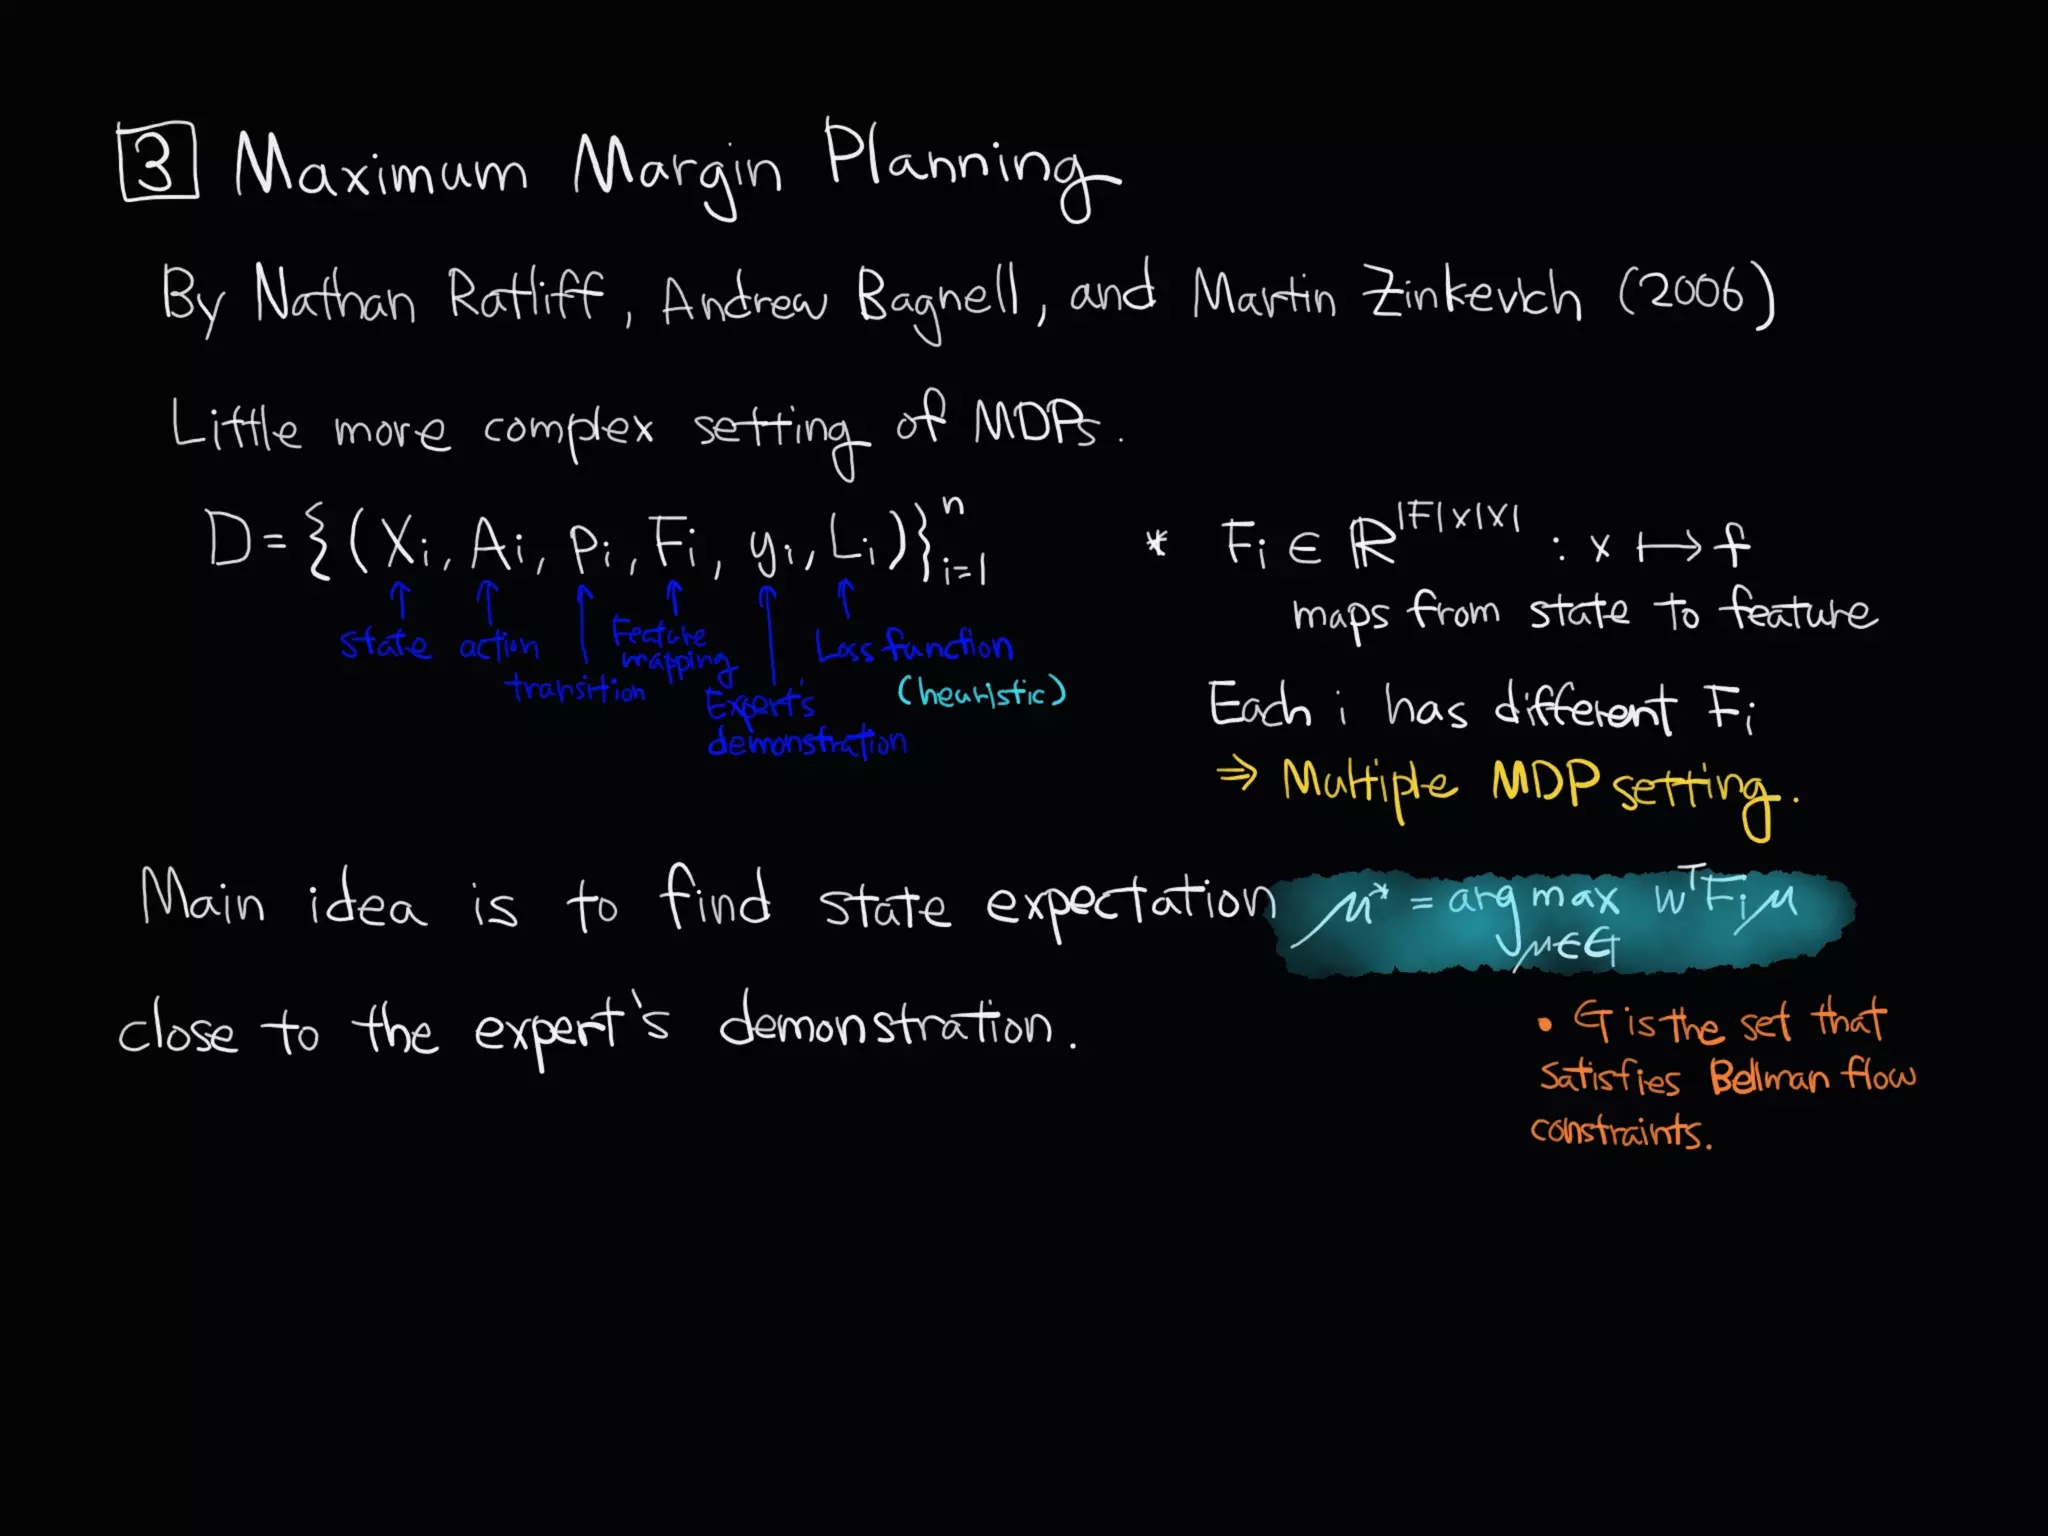 3 Maximum Margin Planning
By Nathan Ratliff, Andrew Bagnell, and Martin Zinkevich (2006)
Little more complex setting of MDPs.
D = {(Xi, Ai, pi, Fi, yi, Li)}ⁿᵢ₌₁
state action transition Feature mapping Expert's demonstration Loss function (heuristic)
* Fi ∈ ℝ^|F|×|X| : x ↦ f
maps from state to feature
Each i has different Fi
⇒ Multiple MDP setting.
Main idea is to find state expectation μ* = arg max wᵀFiμ
μ∈G
close to the expert's demonstration.
• G is the set that
satisfies Bellman flow
constraints.